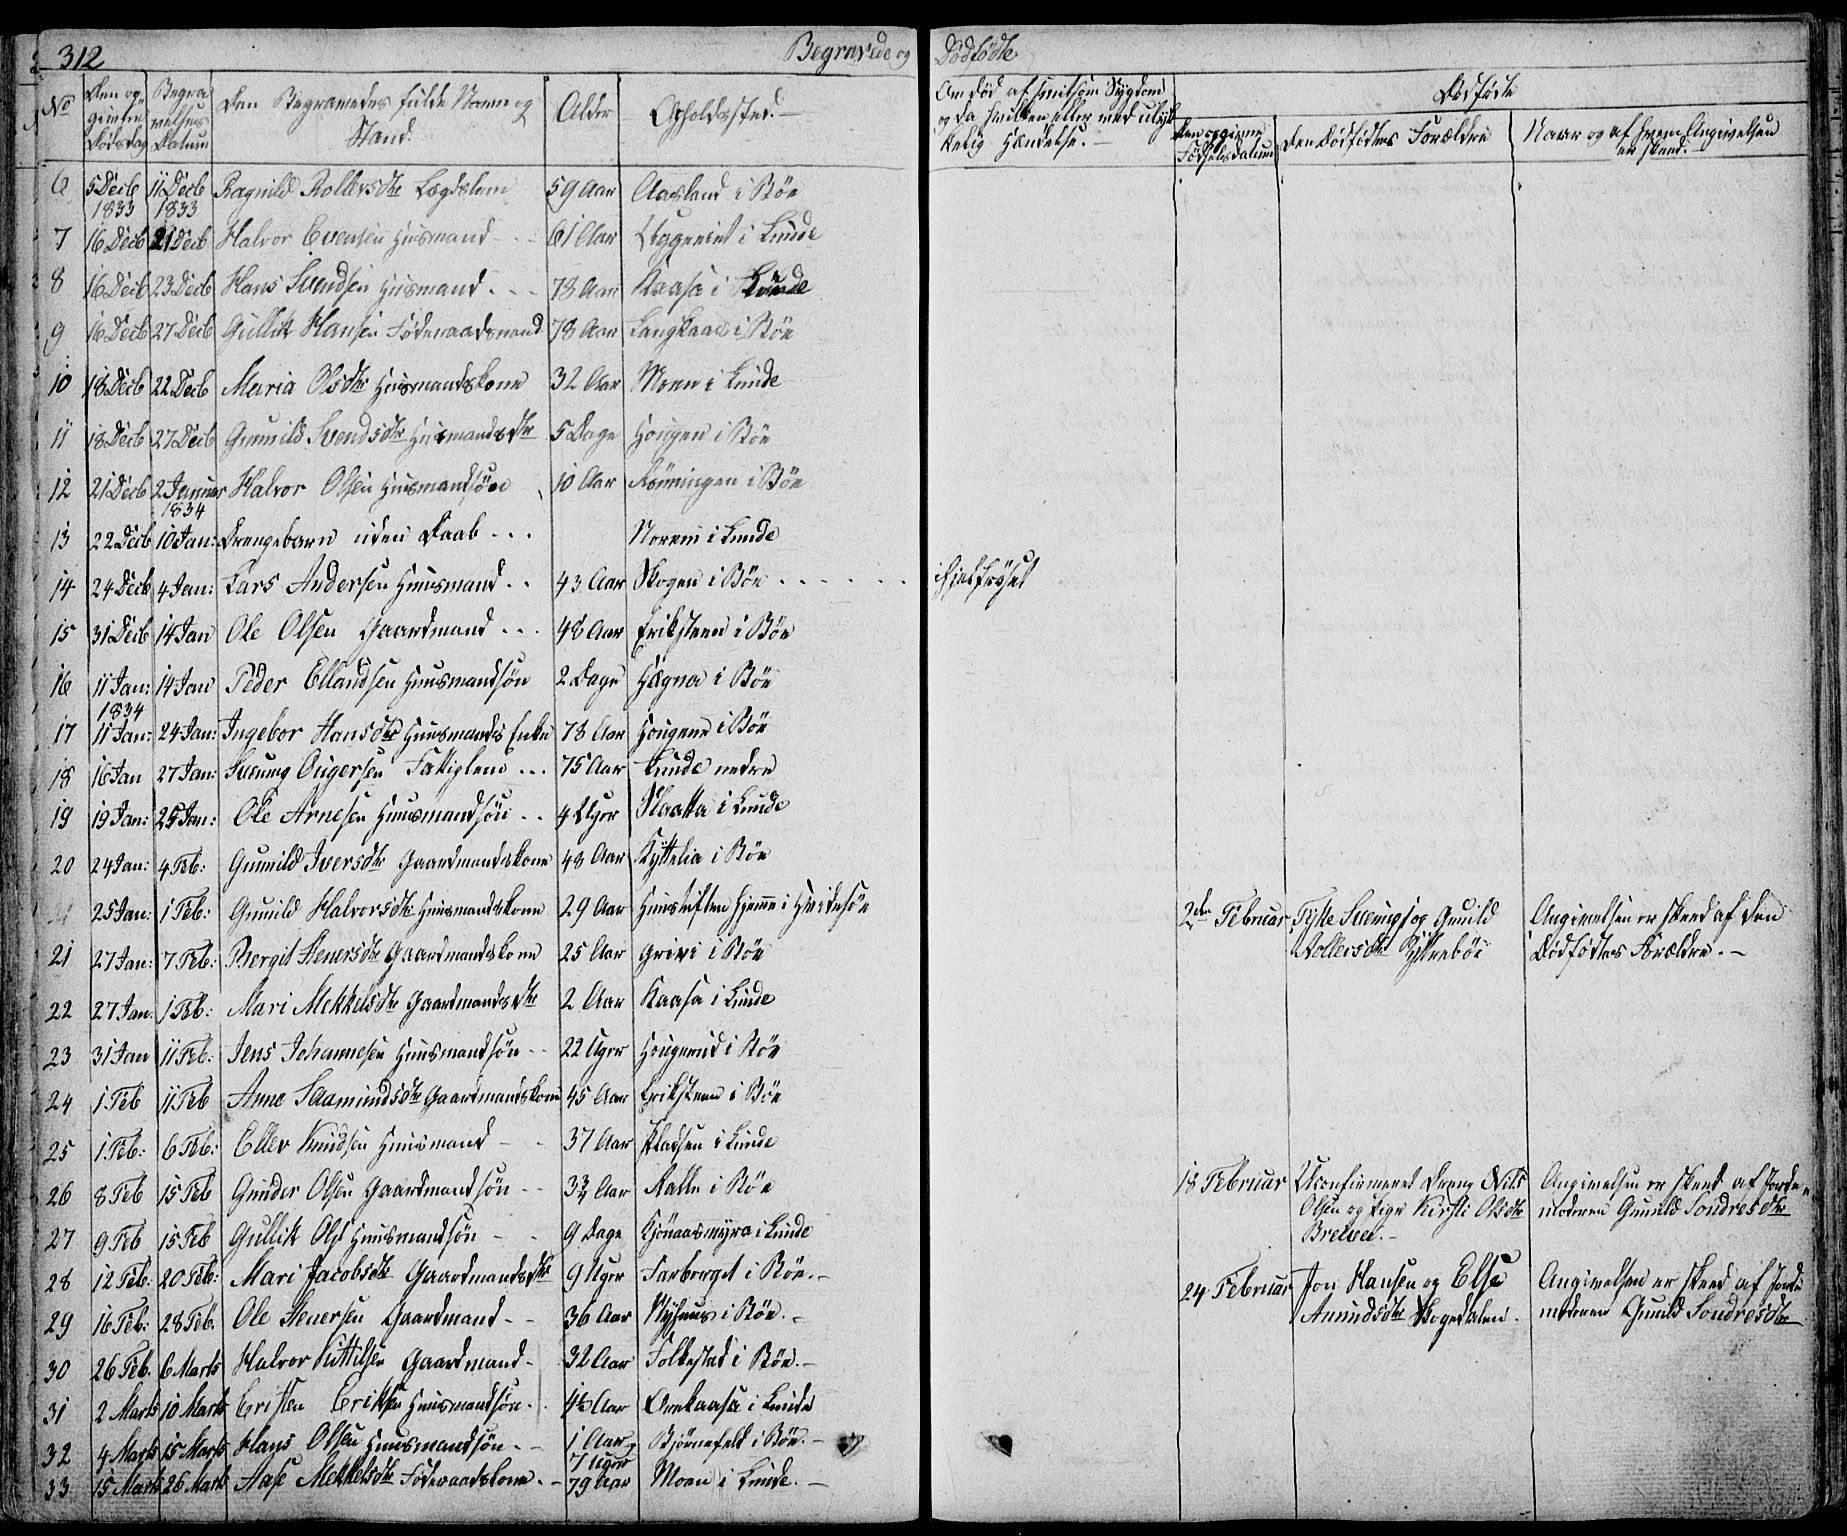 312 Begravede og Dödfödte
No Den opgivne Dödsdag Begravelses Datum Den Begravedes fulde Navn og Stand. Alder Opholdssted. Om död af smitsom Sygdom og da hvilken eller ved ulykkelig Hændelse. Dödfödte
Den opgivne Födselsdatum Den Dödfödtes Forældre Naar og af hvem Angivelsen er skeed.
6 5 Decb 1833 11 Decb 1833 Ragnild Rollevsdtr Lægdslem 59 Aar Aasland i Böe
7 16 Decb 21 Decb Halvor Evensen Huusmand 61 Aar i Lunde
8 16 Decb 23 Decb Hans Svendsen Huusmand 78 Aar Kaasa i Lunde
9 16 Decb 27 Decb Gullik Hansen Föderaadsmand 78 Aar Langkaas i Böe
10 18 Decb 22 Decb Maria Olsdtr Huusmandskone 32 Aar Moen i Lunde
11 18 Decb 27 Decb Gunnild Svendsdtr Huusmandsdtr 5 Dage Hougen i Böe
12 21 Decb 2 Januar 1834 Halvor Olsen Huusmandsön 10 Aar Rönningen i Böe
13 22 Decb 10 Jan: Drengebarn uden Daab Norem i Lunde
14 24 Decb 4 Jan: Lars Andersen Huusmand 43 Aar Skogen i Böe ihjelfröset
15 31 Decb 14 Jan Ole Olsen Gaardmand 48 Aar Eriksteen i Böe
16 11 Jan: 1834 14 Jan Peder Ellandsen Huusmandsön 2 Dage Hægna i Böe
17 11 Jan: 24 Jan: Ingebor Hansdtr Huusmands Enke 78 Aar Hougene i Böe
18 16 Jan 27 Jan: Sveinung Fattiglem 75 Aar Lunde nedre
19 19 Jan: 25 Jan: Ole Arnesen Huusmandsön 4 Uger Slaatta i Lunde
20 24 Jan: 4 Feb: Gunnild Iversdtr Gaardmandskone 48 Aar Kyttelia i Böe
25 Jan: 1 Feb: Gunild Halvorsdtr Huusmandskone 29 Aar hjemme i Hvidesöe
2den Februar og Gunild Rollevsdtr Angivelsen er skeed af den Dödfödtes Forældre.
21 27 Jan: 7 Feb: Bergit Stenersdtr Gaardmandskone 25 Aar Grivi i Böe
22 27 Jan: 1 Feb: Mari Mekkelsdtr Gaardmandsdtr 2 Aar Kaasa i Lunde
23 31 Jan 11 Feb: Jens Johannesen Huusmandsön 22 Uger Hougerud i Böe
24 1 Feb 11 Feb Anne Saamundsdtr Gaardmandskone 45 Aar Eriksteen i Böe
25 1 Feb: 6 Feb: Ellev Knudsen Huusmand 37 Aar Pladsen i Lunde
26 8 Feb 15 Feb Gunder Olsen Gaardmandsön 3¾ Aar i Böe
18 Februar Ukonfirmeret Dreng Nils Olsen og Pige Kirsti Olsdtr Angivelsen er skeed af Jordemoderen Gunild Sondresdtr
27 9 Feb 15 Feb Gullik Ols Huusmandsön 9 Dage Kjönaasmyra i Lunde
28 12 Feb: 20 Feb: Mari Jacobsdtr Gaardmandsdtr 9 Uger Farberget i Böe.
24 Februar Jon Hansen og Else Amundsdtr Skogedalen. Angivelsen er skeed af Jordemoderen Gunild Sondresdtr
29 16 Feb: 28 Feb. Ole Stenersen Gaardmand 36 Aar Nyhuus i Böe.
30 26 Feb. 6 Marts Halvor Kittilsen Gaardmand 32 Aar Folkestad i Böe.
31 2 Marts 10 Marts Cristen Eriksen Huusmandsön 4½ Aar Ovekaasa i Lunde
32 4 Marts 15 Marts Hans Olsen Huusmandsön 1 Aar 7 Uger Björnefeld i Böe.
33 15 Marts 26 Marts Aase Mekkelsdtr Föderaadskone 79 Aar Moen i Lunde.